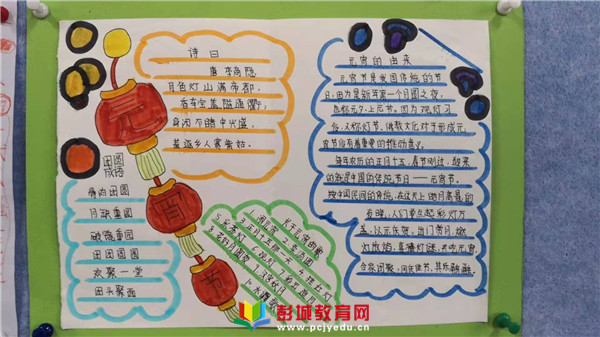 诗曰
唐 李商隐
月色灯山满帝都,
香车宝盖隘通衢;
身闲不睹中兴盛,
羞逐乡人赛紫姑。
元宵节
团圆
成语
骨肉团圆
月缺重圆
破镜重园
团团圆圆
欢聚一堂
元宵的由来
元宵节是我国传统的节
日,因为是新年第一个月圆之夜,
也称元夕,上元节。因为观灯习
俗,又称灯节,佛教文化对于形成元
宵节俗有着重要的推动意义。
每年农历的正月十五,春节刚过,迎来
的就是中国的传统节日——元宵节。
按中国民间的传统,在这天上皓月高悬的
夜晚,人们要点起彩灯万
盏,以示庆贺。出门赏月、燃
灯放焰、喜猜灯谜、共吃元宵
合家团聚、同庆佳节,其乐融融。
彭城教育网
www.pcjyedu.cn